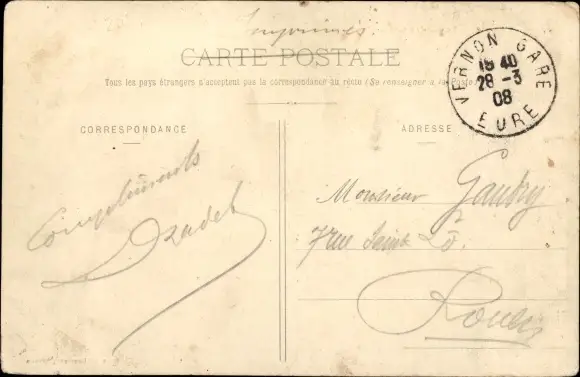 Imprimés.
CARTE POSTALE
Tous les pays étrangers n'acceptent pas la correspondance au recto (Se renseigner à la Poste)
VERNON GARE
18 40
28 -3
08
EURE
CORRESPONDANCE
ADRESSE
Compliments
Monsieur Gaudry
7 rue Saint Lô
Rouen